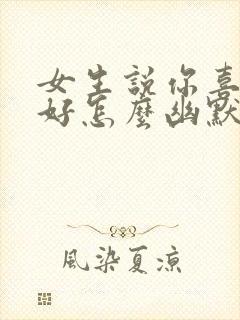 女生說你喜
好怎麼幽默
風染夏涼